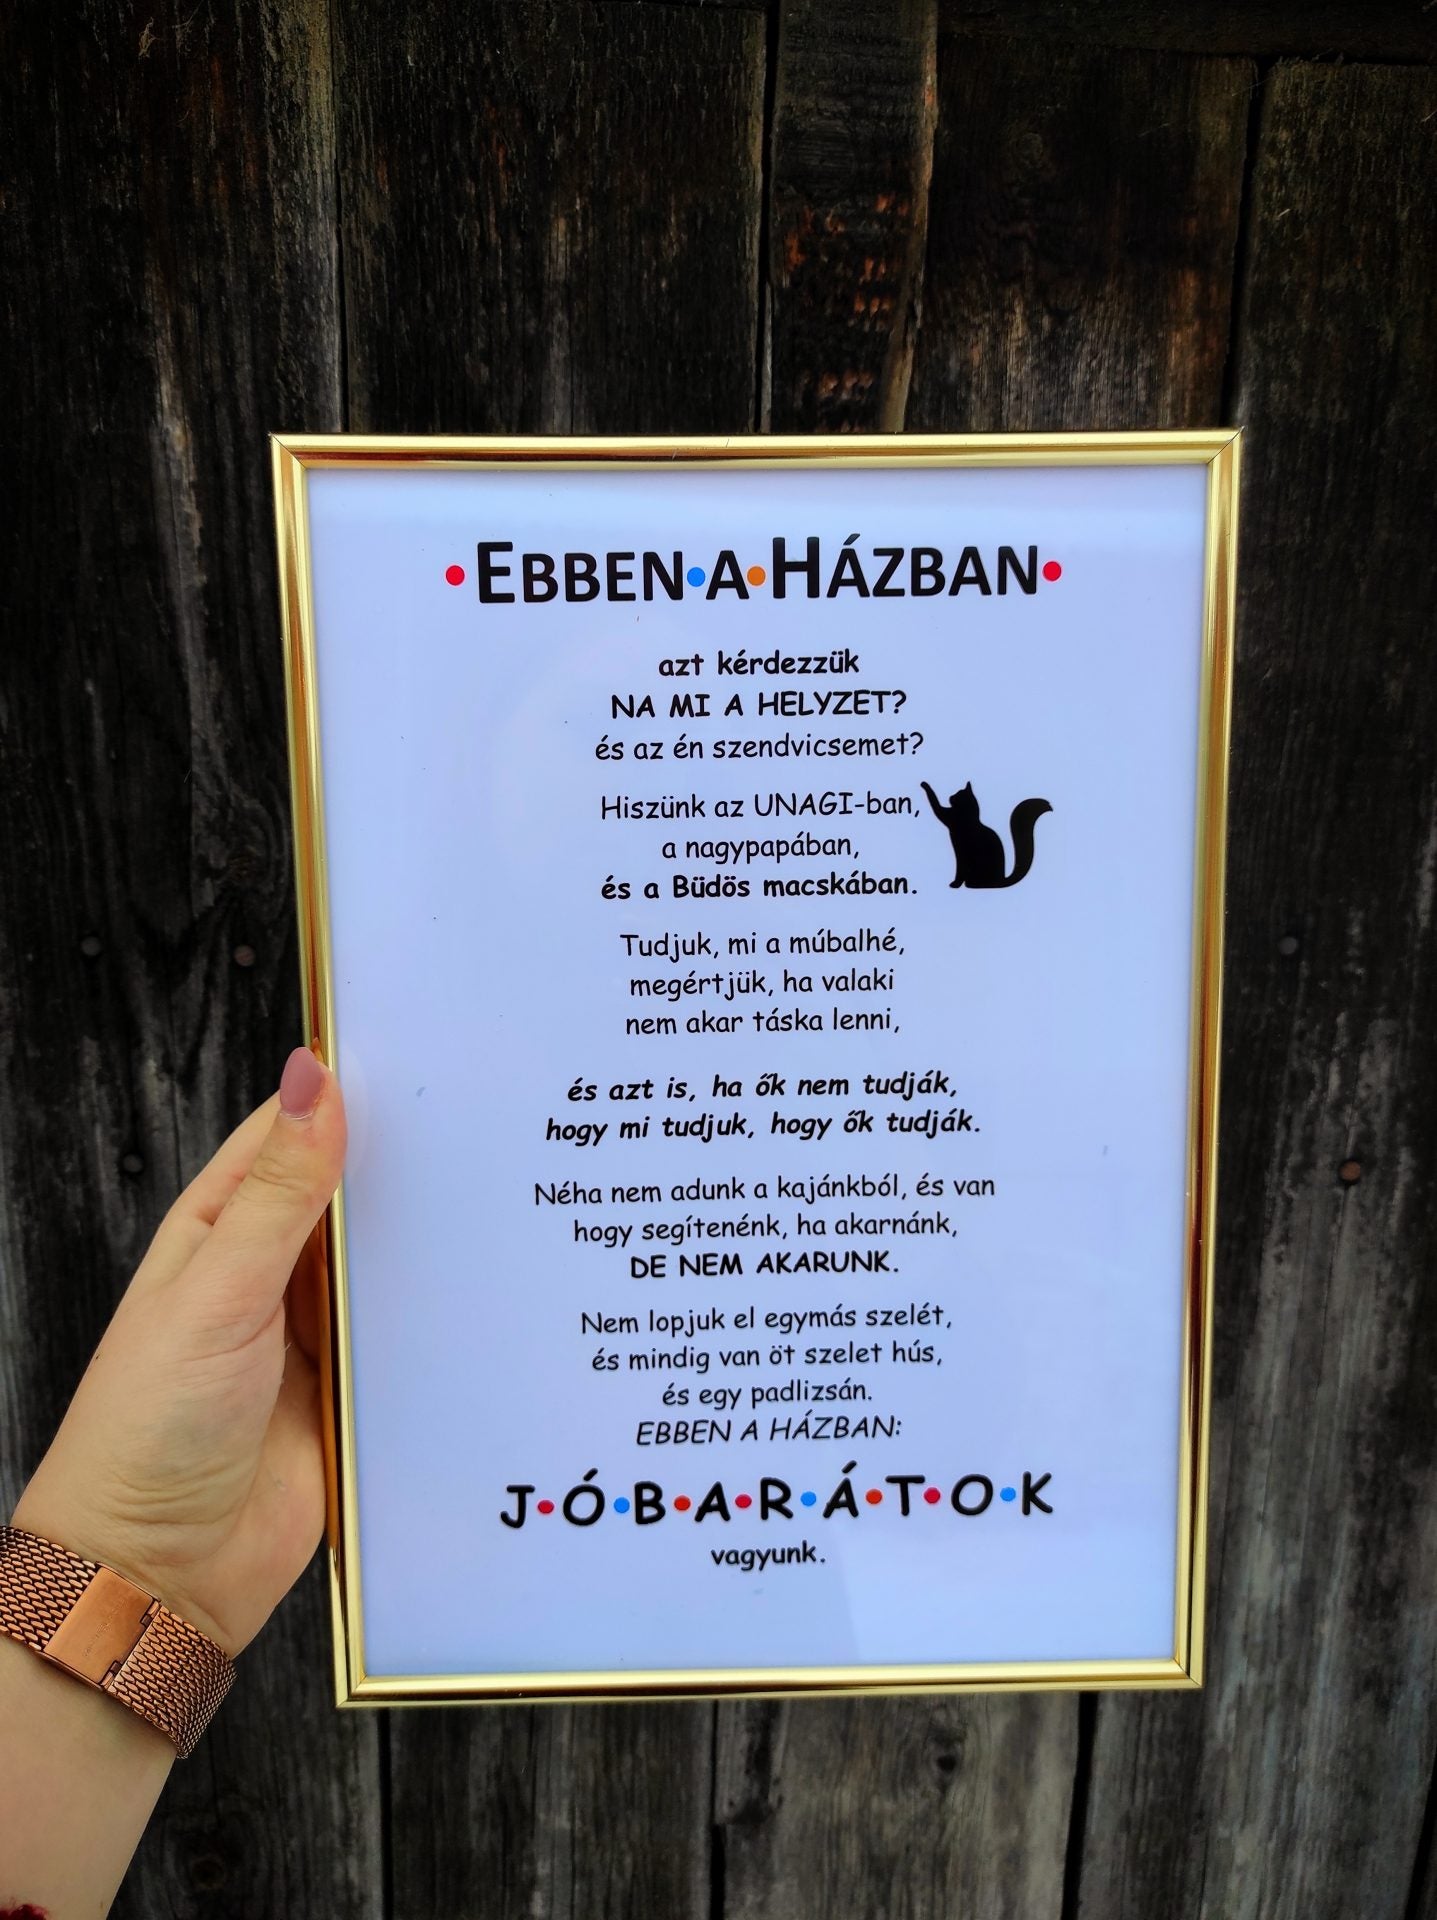 •EBBEN•A•HÁZBAN•
azt kérdezzük
NA MI A HELYZET?
és az én szendvicsemet?
Hiszünk az UNAGI-ban,
a nagypapában,
és a Büdös macskában.
Tudjuk, mi a múbalhé,
megértjük, ha valaki
nem akar táska lenni,
és azt is, ha ők nem tudják,
hogy mi tudjuk, hogy ők tudják.
Néha nem adunk a kajánkból, és van
hogy segítenénk, ha akarnánk,
DE NEM AKARUNK.
Nem lopjuk el egymás szelét,
és mindig van öt szelet hús,
és egy padlizsán.
EBBEN A HÁZBAN:
J•Ó•B•A•R•Á•T•O•K
vagyunk.